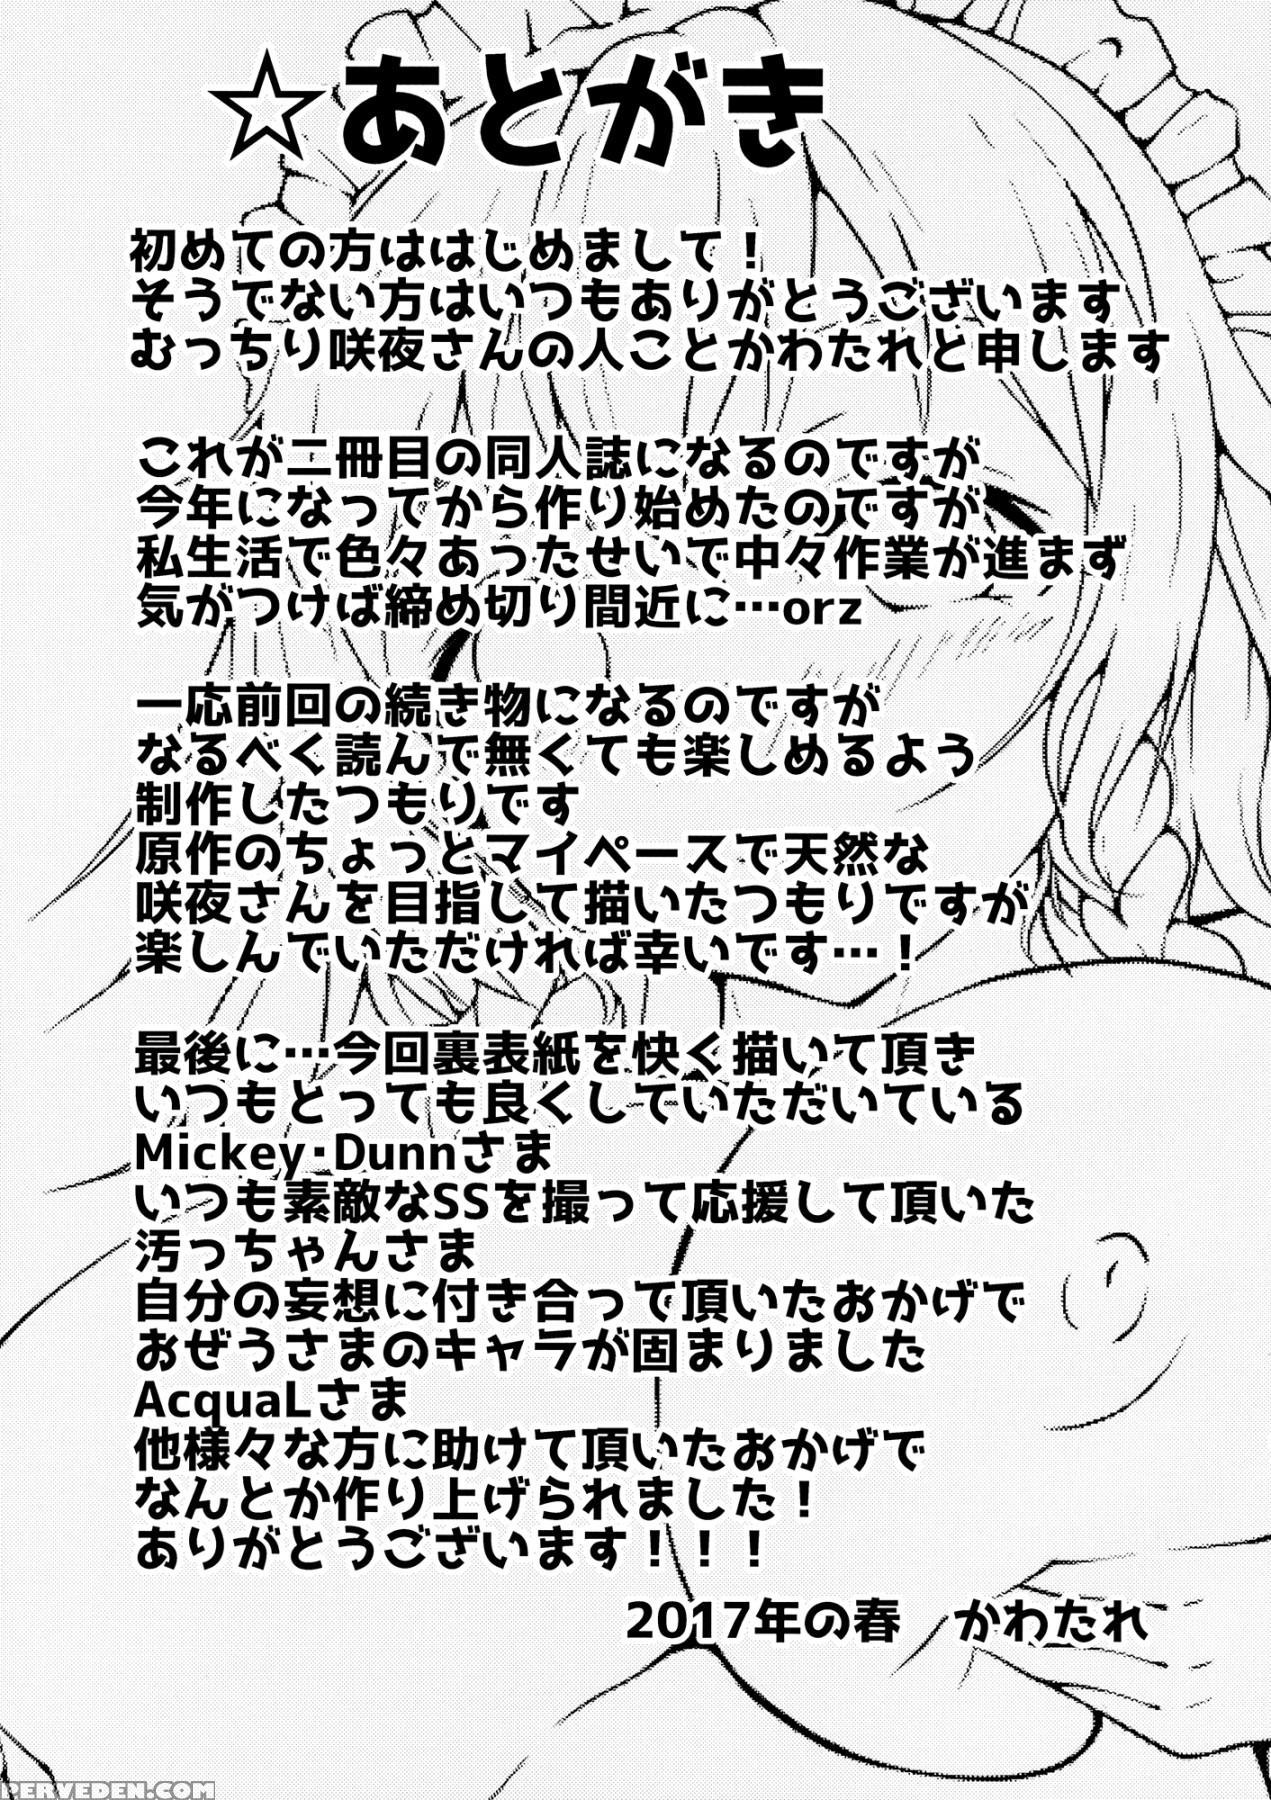 ☆あとがき
初めての方ははじめまして！
そうでない方はいつもありがとうございます
むっちり咲夜さんの人ことかわたれと申します
これが二冊目の同人誌になるのですが
今年になってから作り始めたのですが
私生活で色々あったせいで中々作業が進まず
気がつけば締め切り間近に…orz
一応前回の続き物になるのですが
なるべく読んで無くても楽しめるよう
制作したつもりです
原作のちょっとマイペースで天然な
咲夜さんを目指して描いたつもりですが
楽しんでいただければ幸いです…！
最後に…今回裏表紙を快く描いて頂き
いつもとっても良くしていただいている
Mickey・Dunnさま
いつも素敵なSSを撮って応援して頂いた
汚っちゃんさま
自分の妄想に付き合って頂いたおかげで
おぜうさまのキャラが固まりました
AcquaLさま
他様々な方に助けて頂いたおかげで
なんとか作り上げられました！
ありがとうございます！！！
2017年の春　かわたれ
PERVEDEN.COM